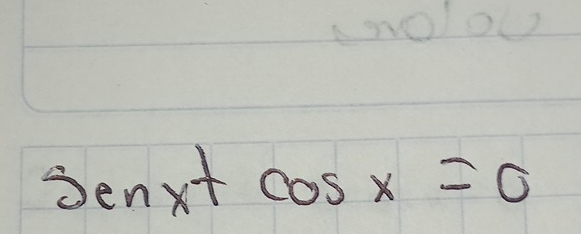 Senx + cos x = 0